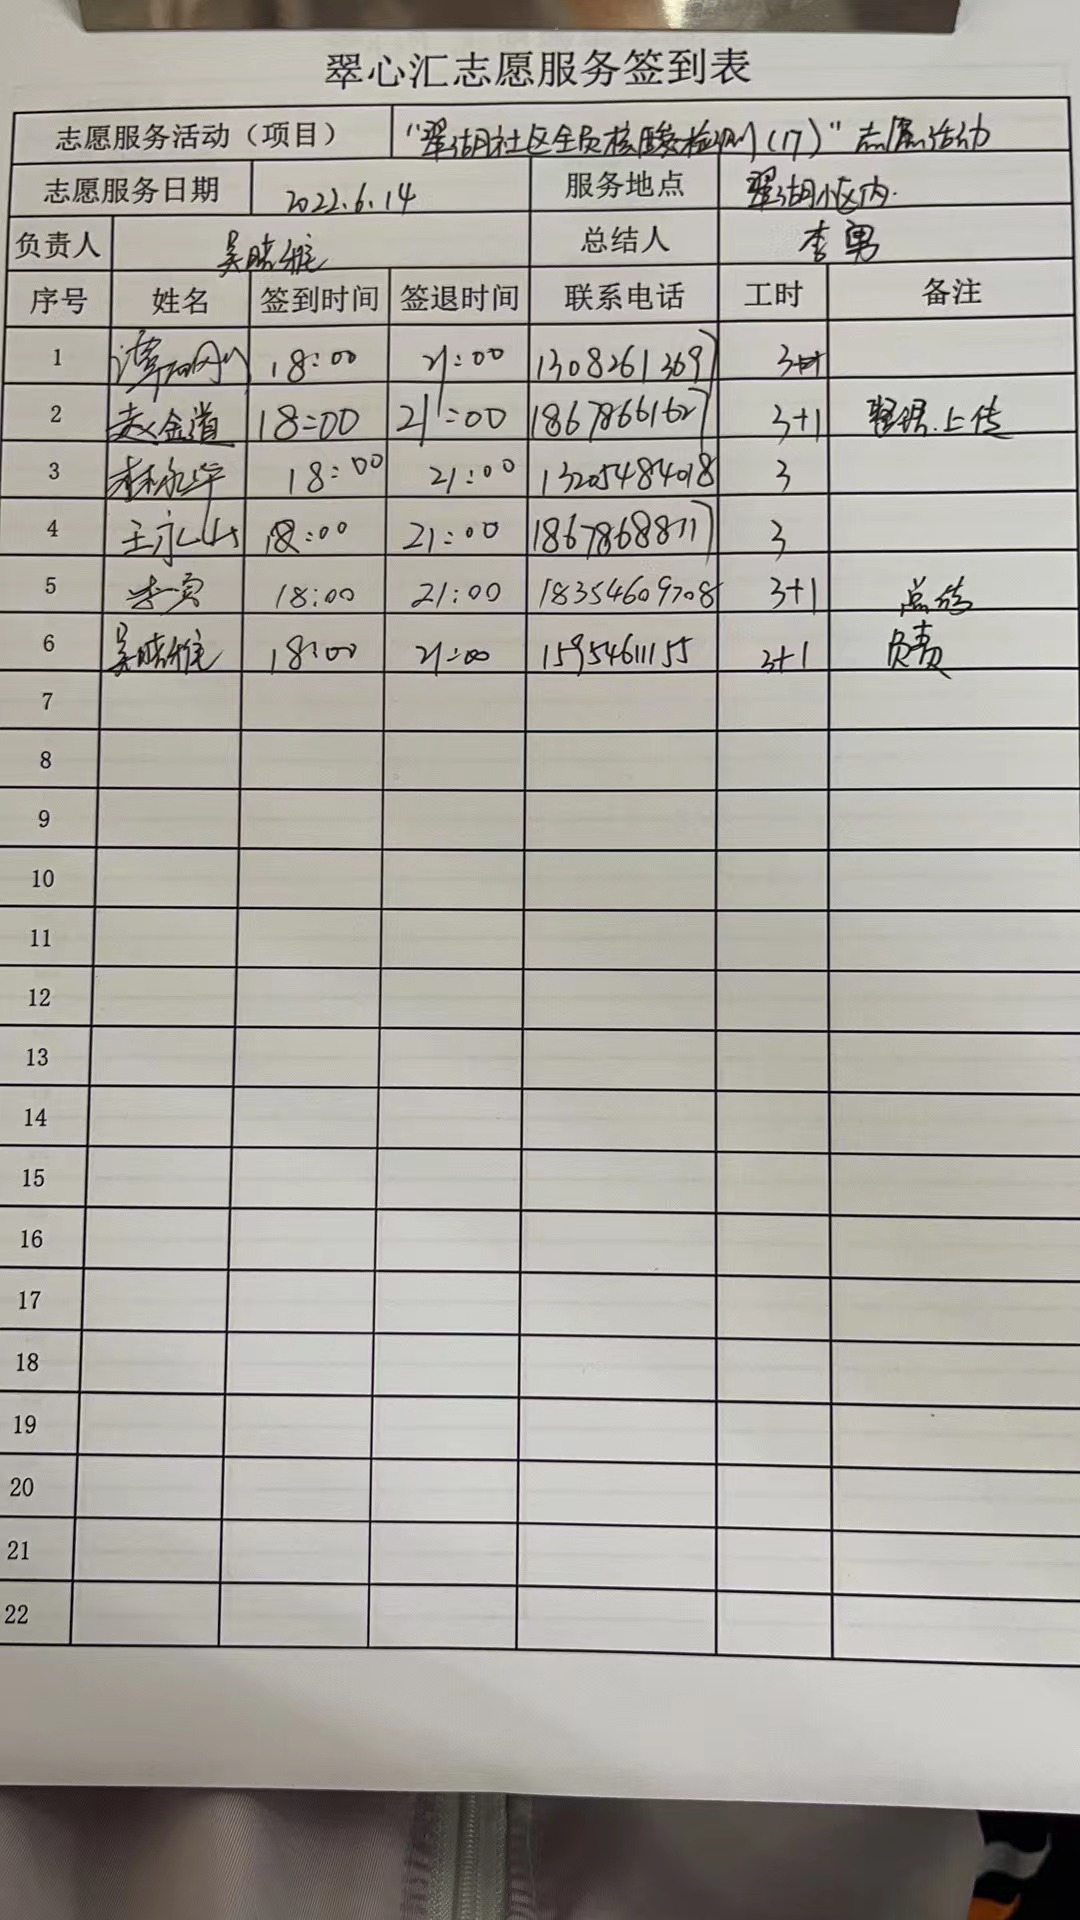 翠心汇志愿服务签到表
志愿服务活动（项目） "翠湖社区全员核酸检测（17）"志愿活动
志愿服务日期 2022.6.14 服务地点 翠湖小区内.
负责人 吴晓维 总结人 李勇
序号 姓名 签到时间 签退时间 联系电话 工时 备注
1 18:00 21:00 13082613697 3
2 赵金道 18:00 21:00 18678661627 3+1 上传
3 18:00 21:00 13205484018 3
4 王永山 18:00 21:00 18678688717 3
5 李勇 18:00 21:00 18354609708 3+1 总结
6 吴晓维 18:00 21:00 15954611155 3+1 负责
7
8
9
10
11
12
13
14
15
16
17
18
19
20
21
22